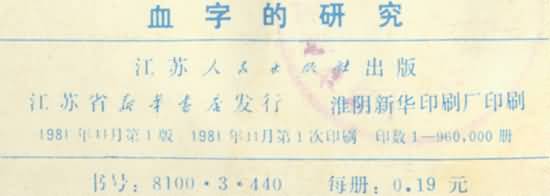 血字的研究
江苏人民出版社出版
江苏省新华书店发行 淮阴新华印刷厂印刷
1981年11月第1版 1981年11月第1次印刷 印数1—960,000册
书号：8100·3·440 每册：0.19元